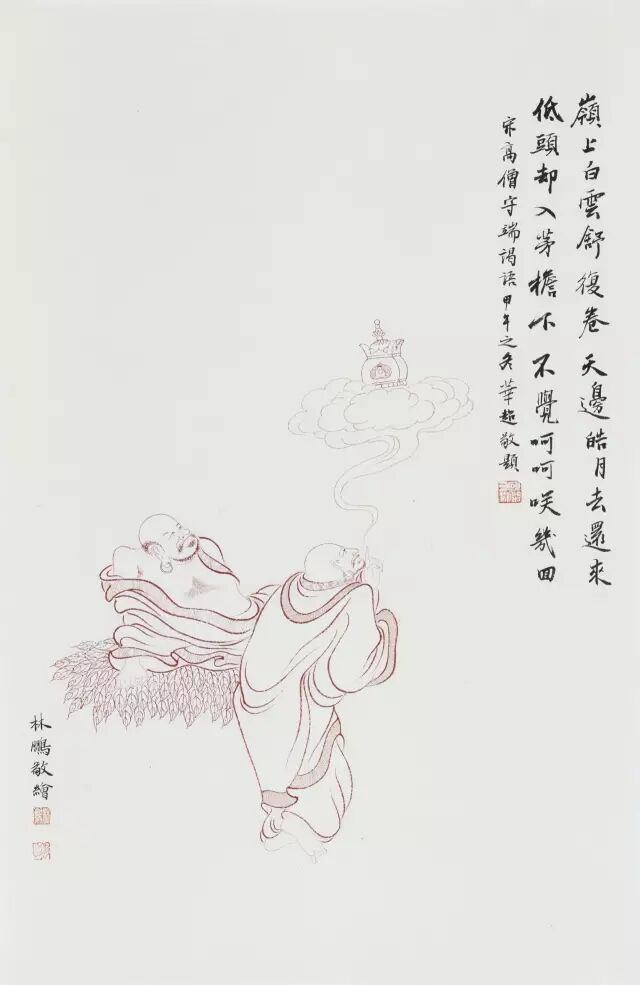 嶺上白雲舒復卷天邊皓月去還來
低頭却入茅檐下不覺呵呵咲幾回
宋高僧守端謁語甲午之冬華超敬題
林鵬敬繪